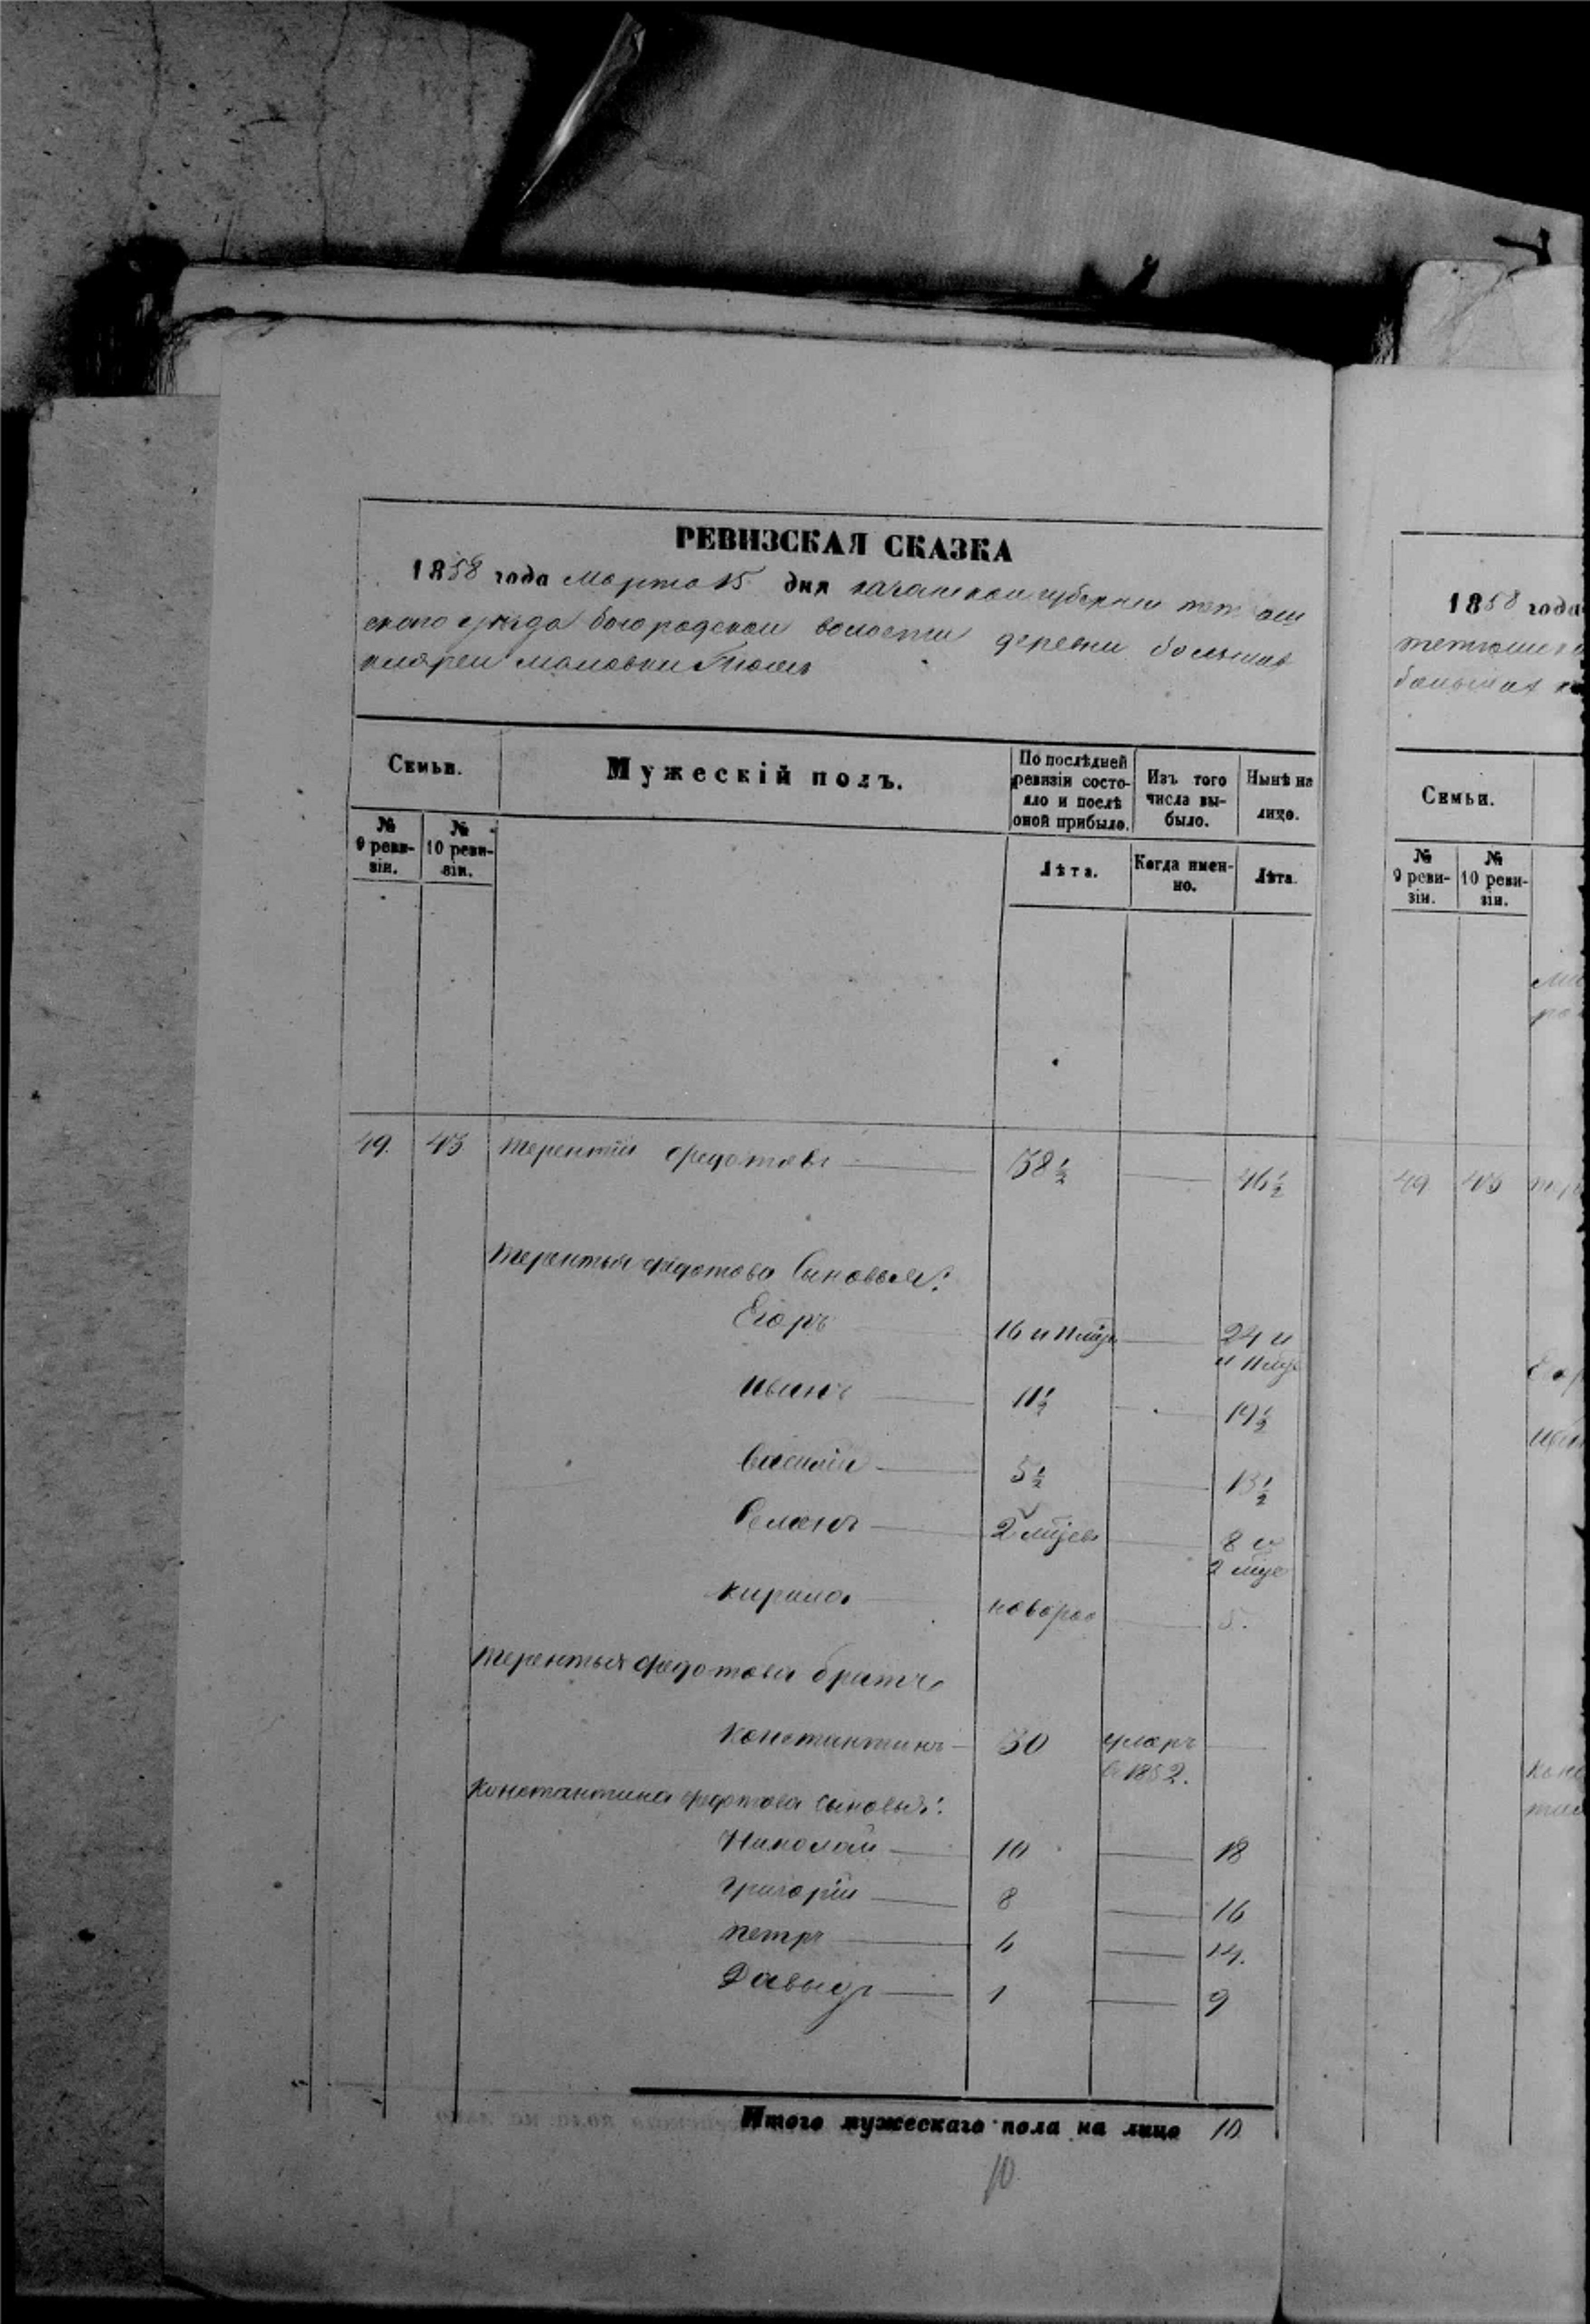 РЕВИЗСКАЯ СКАЗКА
1858 года марта 15 дня казанской губернии тетюш
скаго уѣзда богородской волости деревни большихъ
Семьи.
Мужескій полъ.
По послѣдней ревизіи состояло и послѣ оной прибыло.
Изъ того числа выбыло.
Нынѣ на лицо.
№ 9 ревизіи.
№ 10 ревизіи.
Лѣта.
Когда именно.
Лѣта.
49. 43 Терентій Федотовъ 38½ 46½
Терентья Федотова Сыновья:
Егоръ 16 и 11 мцъ 24 и
и 11 мцъ
Иванъ 11½ 19½
Василій 5½ 13½
2 мцевъ 8 и
2 мце
Кирила новорож 5.
Терентья Федотова братъ
Константинъ 30 умеръ
въ 1852.
Константина Федотова сыновья:
Николай 10 18
Григорій 8 16
Петръ 6 14.
Давыдъ 1 9
Итого мужескаго пола на лицо 10
10
1858 года
тетюшска
большихъ
Семьи.
№ 9 ревизіи.
№ 10 ревизіи.
49 43